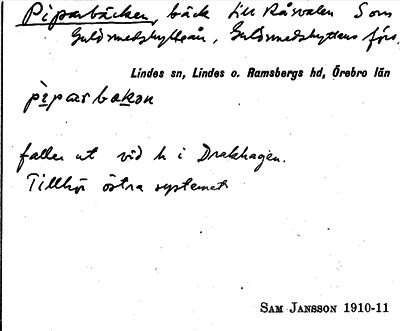 Piparbäcken, bäck till Råsvalen Som
Guldsmedshytteån, Guldsmedshyttens förs.
Lindes sn, Lindes o. Ramsbergs hd, Örebro län
pìparbækən
faller ut vid h i Drakhagen.
Tillhör östra systemet
SAM JANSSON 1910-11